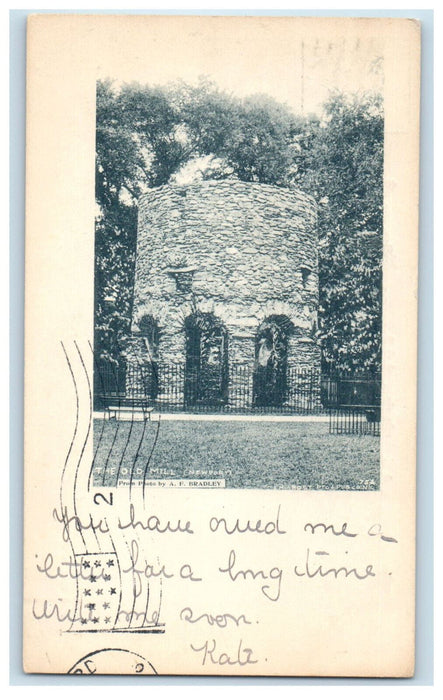 THE OLD MILL (NEWPORT)
From Photo by A. F. BRADLEY
2
You have owed me a
letter for a long time.
Write me soon.
Kate.